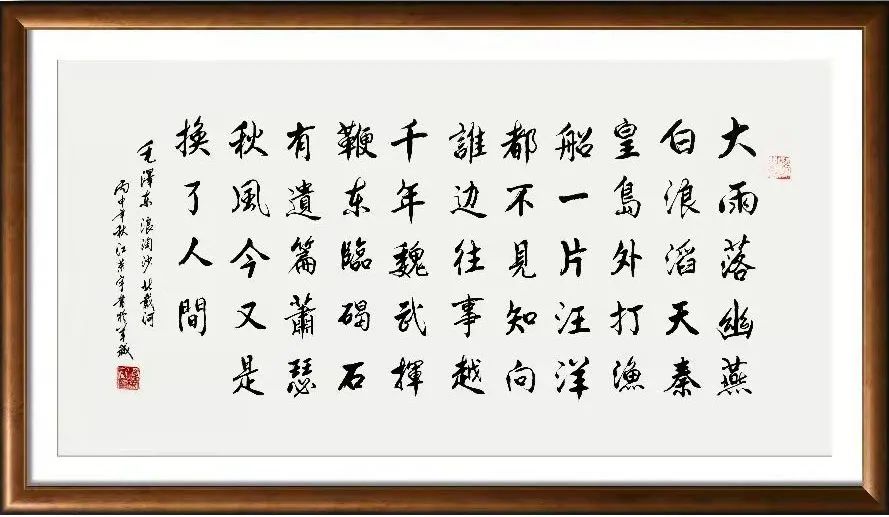 大雨落幽燕
白浪滔天秦
皇島外打漁
船一片汪洋
都不見知向
誰边往事越
千年魏武揮
鞭东臨碣石
有遺篇蕭瑟
秋風今又是
換了人間
毛澤东浪淘沙北戴河
丙申年秋江書於羊城